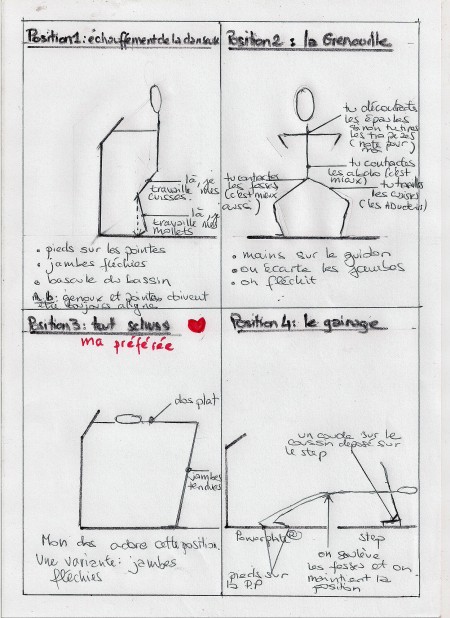 Position 1: échauffement de la danseuse
là, je
travaille mes
cuisses.
là, je
travaille mes
mollets
• pieds sur les pointes
• jambes fléchies
• bascule du bassin
N.B: genoux et pointes doivent
être toujours aligné
Position 2 : la Grenouille
tu décontractes
les épaules
sinon tu tires
les trapèzes
(note pour
moi)
tu contractes
les abdos (c'est
mieux)
tu contractes
les fesses
(c'est mieux
aussi)
tu travailles
les cuisses
(les ADucteurs)
• mains sur le guidon
• on écarte les jambes
• on fléchit
Position 3: tout schuss
ma préférée
dos plat
jambes
tendues
Mon dos adore cette position.
Une variante: jambes
fléchies
Position 4: le gainage
un coude sur le
coussin déposé sur
le step
Powerplate®
step
pieds sur
la P.P
on soulève
les fesses et on
maintient la
position